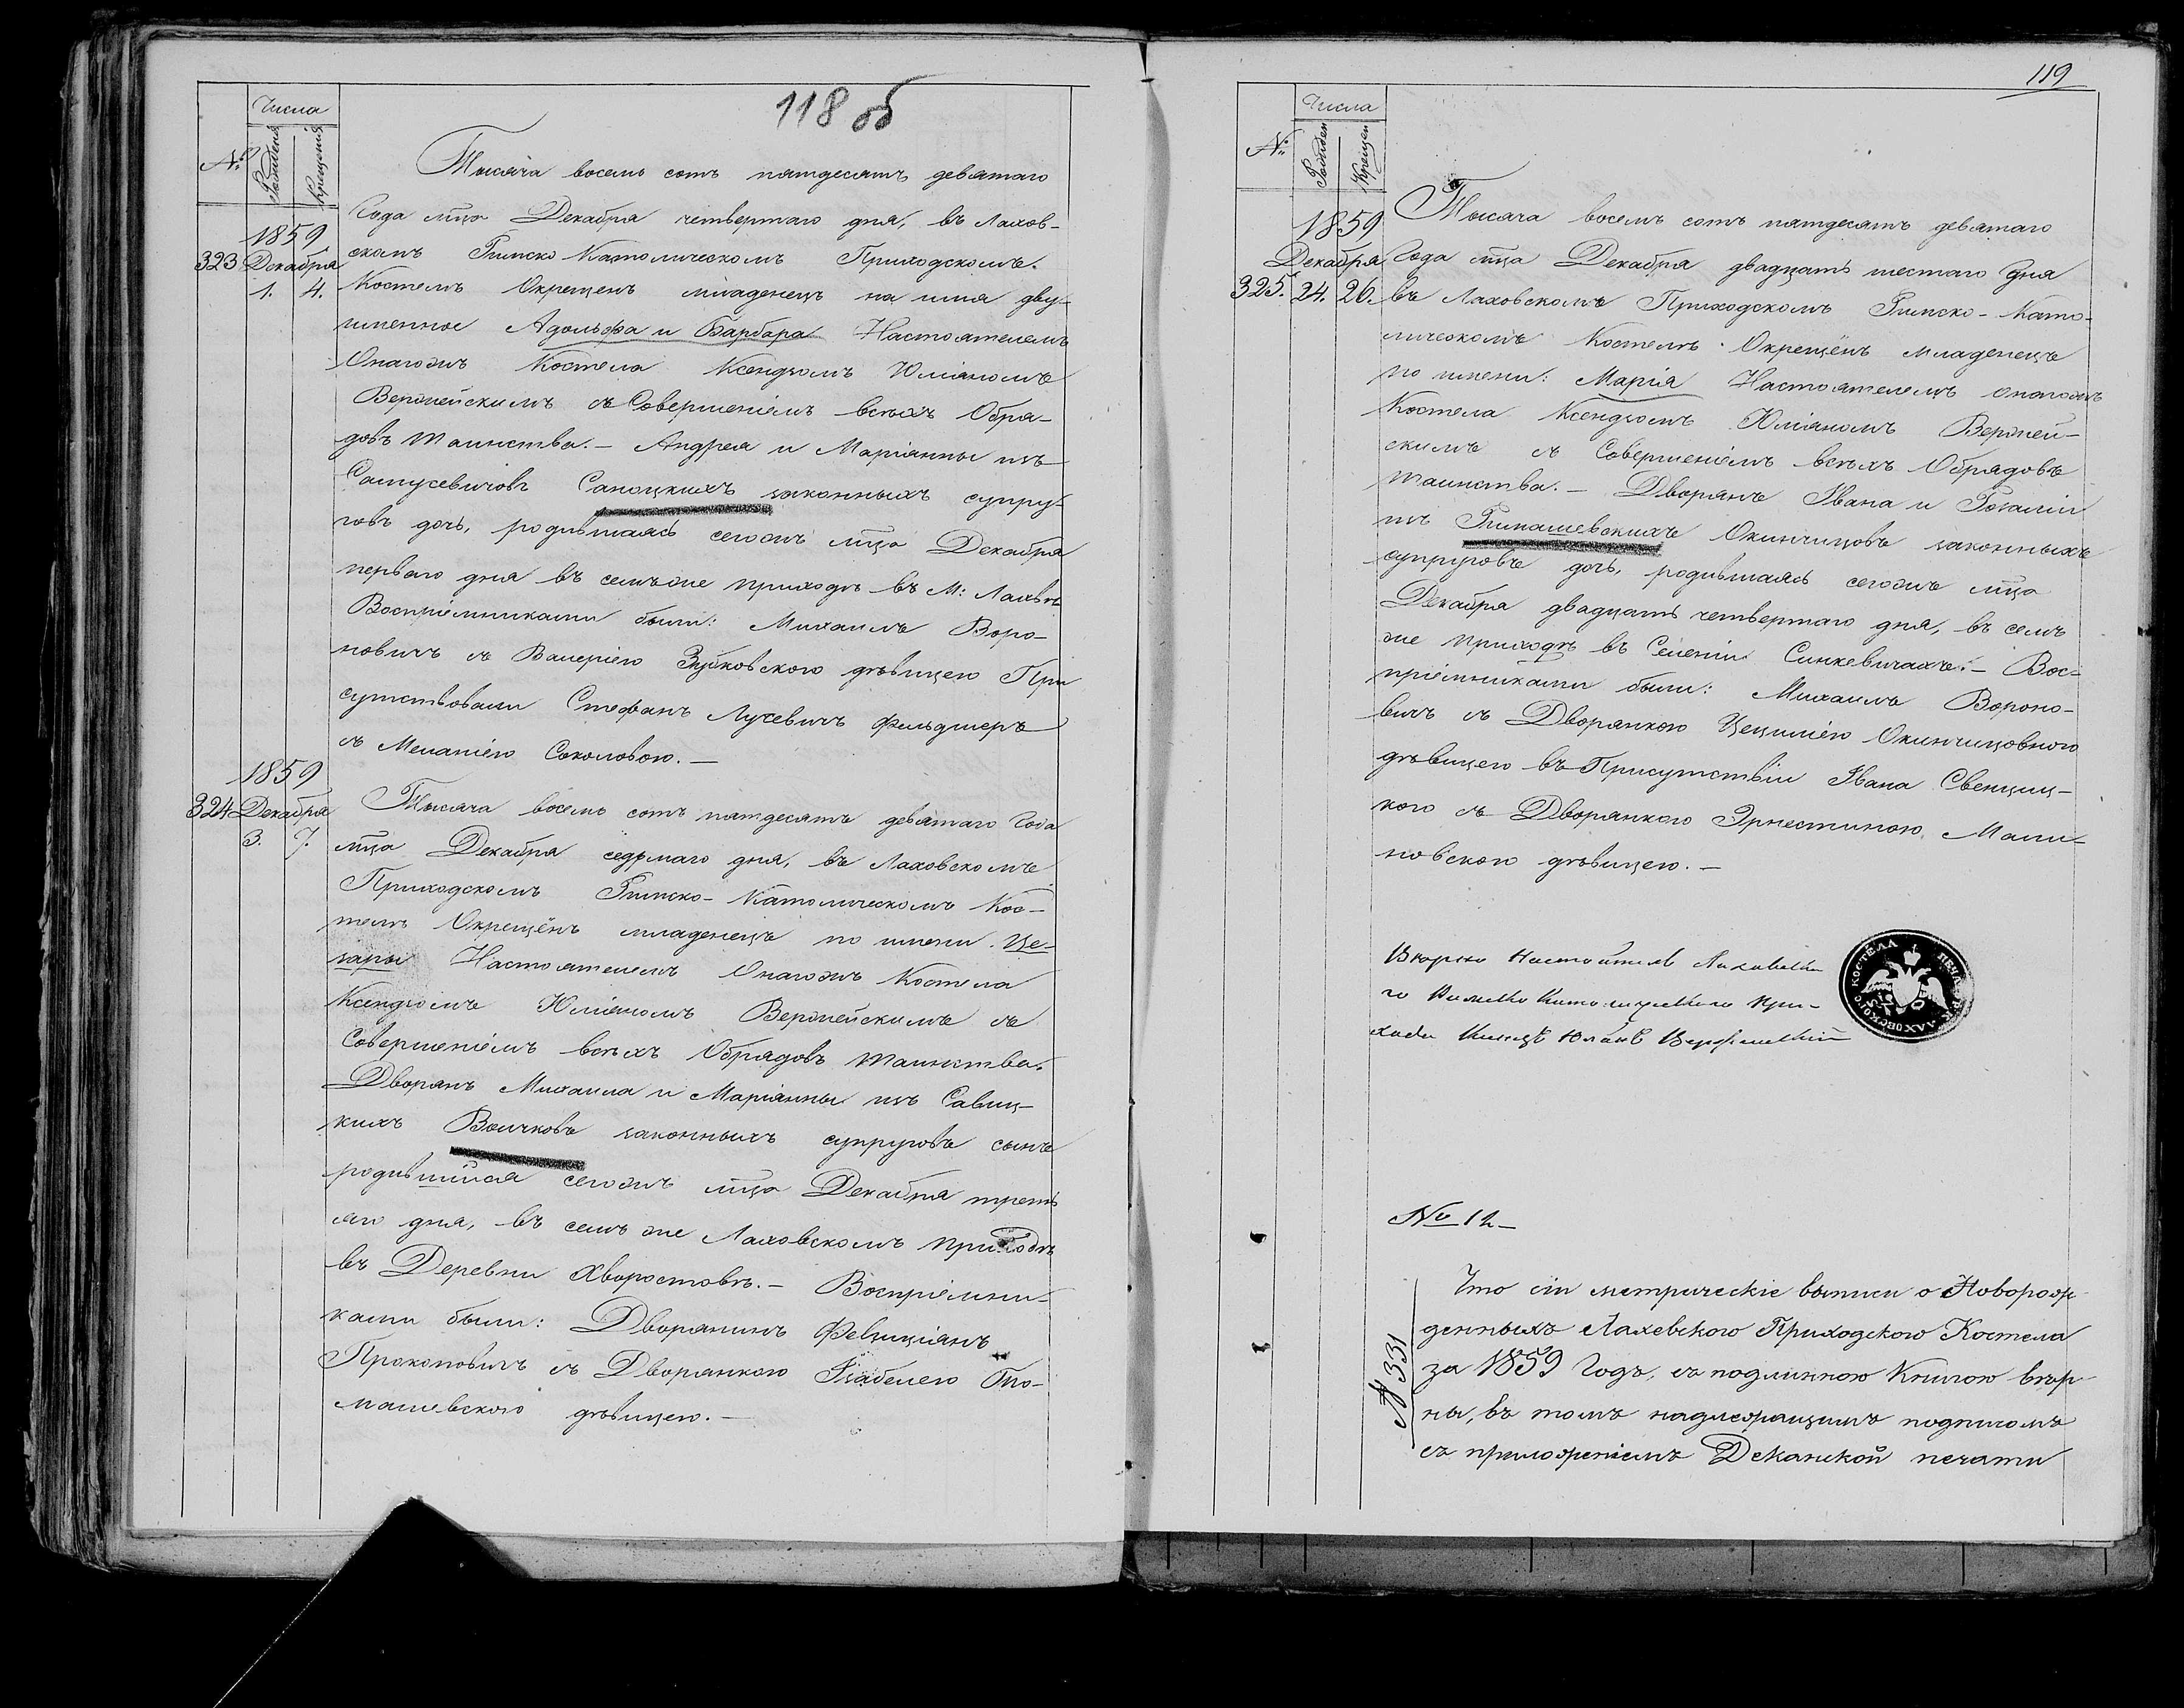 118 об
Числа
№
Рожденія
Крещенія
Тысяча восемь сотъ пятдесятъ девятаго
Года мца Декабря четвертаго дня, въ Лахов-
1859
323 Декабря
1. 4.
скомъ Римско Католическомъ Приходскомъ
Костелѣ Окрещенъ младенецъ на имя дву-
именное Адольфа и Барбара Настоятелемъ
Онагожъ Костела Ксендзомъ Юліаномъ
съ Совершеніемъ всѣхъ Обря-
довъ таинства. – Андрея и Маріанны изъ
Саноцкихъ законныхъ супру-
говъ дочь, родившаясь сегожъ мца Декабря
перваго дня въ семъ же приходѣ въ М: Лахвѣ
Воспріемниками были: Михаилъ Воро-
новичъ съ Валеріею Зубковскою дѣвицею При
сутствовали Стефанъ Лучевичъ Фельдшеръ
съ Меланіею Соколовою. –
1859
324 Декабря
3. 7.
Тысяча восемь сотъ пятдесятъ девятаго Года
мца Декабря седьмаго дня, въ Лаховскомъ
Приходскомъ Римско-Католическомъ Кос-
телѣ Окрещёнъ младенецъ по имени Це-
зарый Настоятелемъ Онагожъ Костела
Ксендзомъ Юліаномъ съ
Совершеніемъ всѣхъ Обрядовъ таинства.
Дворянъ Михаила и Маріанны изъ Савиц-
кихъ Воличковъ законныхъ супруговъ сынъ
родившійся сегожъ мца Декабря треть
яго дня, въ семъ же Лаховскомъ приходѣ
въ Деревни Хворостовѣ. – Воспріемни-
ками были: Дворянинъ Фелиціянъ
Прокоповичъ съ Дворянкою Изабелею
машевскою дѣвицею. –
119
Числа
№
Рожден
Крещен
1859
Декабря
325. 24. 26.
Тысяча восемъ сотъ пятдесятъ девятаго
Года мца Декабря двадцать шестаго дня
въ Лаховскомъ Приходскомъ Римско-Като-
лическомъ Костелѣ Окрещёнъ младенецъ
по имени: Марія Настоятелемъ онагожъ
Костела Ксендзомъ Юліаномъ
скимъ съ Совершеніемъ всѣхъ Обрядовъ
таинства. – Дворянъ Ивана и Розаліи
изъ Римашевскихъ Окинчицовъ законныхъ
супруговъ дочь, родившаясь сегожъ мца
Декабря двадцать четвертаго дня, въ семъ
же приходѣ въ Селеніи Синкевичахъ. – Вос-
пріемниками были: Михаилъ Вороно-
вичъ съ Дворянкою Цециліею Окинчицовною
дѣвицею въ Присутствіи Ивана Свенциц-
кого съ Дворянкою Эрнестиною Мали-
новскою дѣвицею. –
Вѣрно Настоятель Лаховска
го Римско Католическаго При-
хода Ксендзъ Юліанъ
ПЕЧАТЬ Р. К. ЛАХОВСКОГО КОСТЁЛА
№ 12 –
№ 331
Что сіи метрическіе выписи о Новорож-
денныхъ Лахевского Приходского Костела
за 1859 Годъ, съ подлинною Книгою вѣр-
ны, въ томъ надлежащимъ подписомъ
съ приложеніемъ Деканской печати